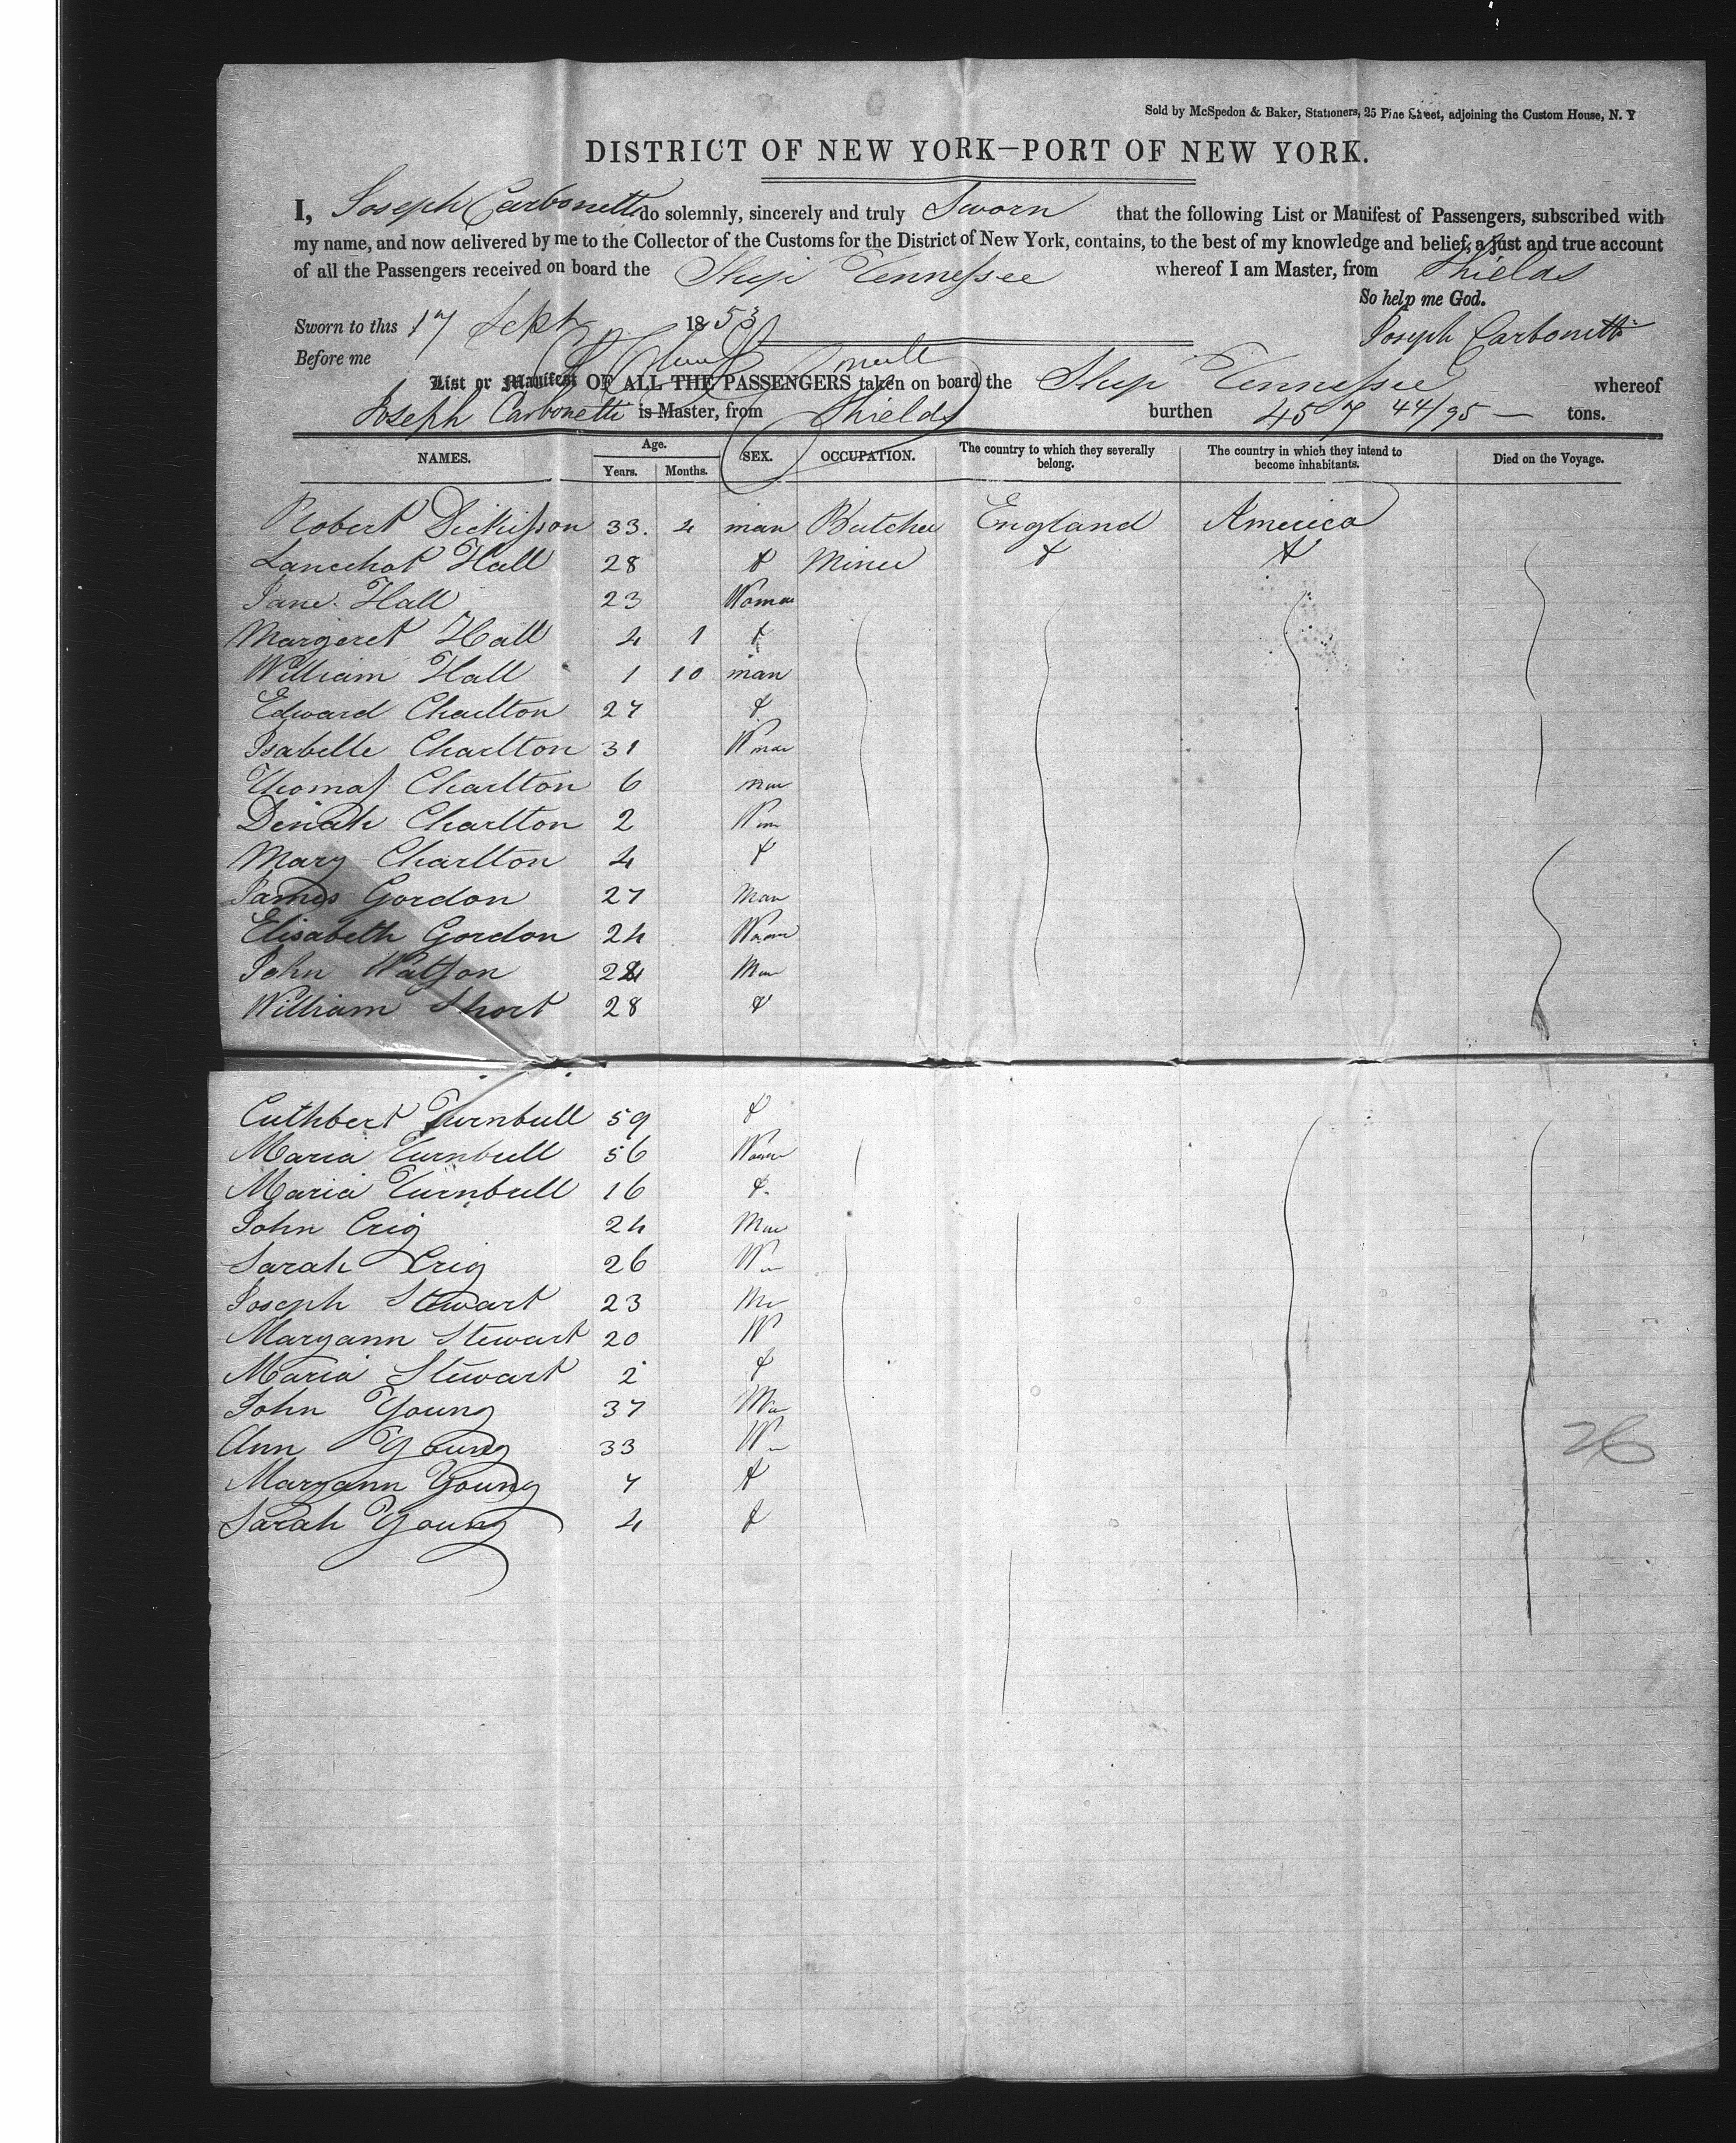 Sold by McSpedon & Baker, Stationers, 25 Pine Street, adjoining the Custom House, N. Y
DISTRICT OF NEW YORK—PORT OF NEW YORK.
I, Joseph Carbonetti do solemnly, sincerely and truly Sworn that the following List or Manifest of Passengers, subscribed with
my name, and now delivered by me to the Collector of the Customs for the District of New York, contains, to the best of my knowledge and belief, a just and true account
of all the Passengers received on board the Ship Tennessee whereof I am Master, from Shields
So help me God.
Sworn to this 17 Sept 1853
Joseph Carbonetti
Before me
List or Manifest OF ALL THE PASSENGERS taken on board the Ship Tennessee whereof
Joseph Carbonetti is Master, from Shields burthen 457 44/95 — tons.
NAMES. Age. Years. Months. SEX. OCCUPATION. The country to which they severally belong. The country in which they intend to become inhabitants. Died on the Voyage.
Robert Dickisson 33. 4 man Butcher England America
Lancehot Hall 28 Miner
Jane Hall 23 Woman
Margeret Hall 4 1
William Hall 1 10 man
Edward Charlton 27
Isabelle Charlton 31 Woman
Thomas Charlton 6 man
Dinah Charlton 2 Wom
Mary Charlton 4
James Gordon 27 Man
Elisabeth Gordon 24 Woman
John Watson Man
William Short 28
Cuthbert Turnbull 59
Maria Turnbull 56 Woman
Maria Turnbull 16
John Crig 24 Man
Sarah Crig 26 W
Joseph Stewart 23 Man
Maryann Stewart 20 W
Maria Stewart 2
John Young 37 Man
Ann Young 33 W
Maryann Young 7
Sarah Young 4
26